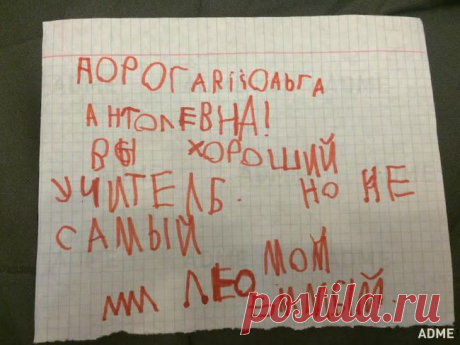 ДОРОГАЯ ОЛЬГА
АНТОЛЕВНА!
ВЫ ХОРОШИЙ
УЧИТЕЛБ. НО НЕ
САМЫЙ
МОЙ
ЛЕО
postila.ru
ADME